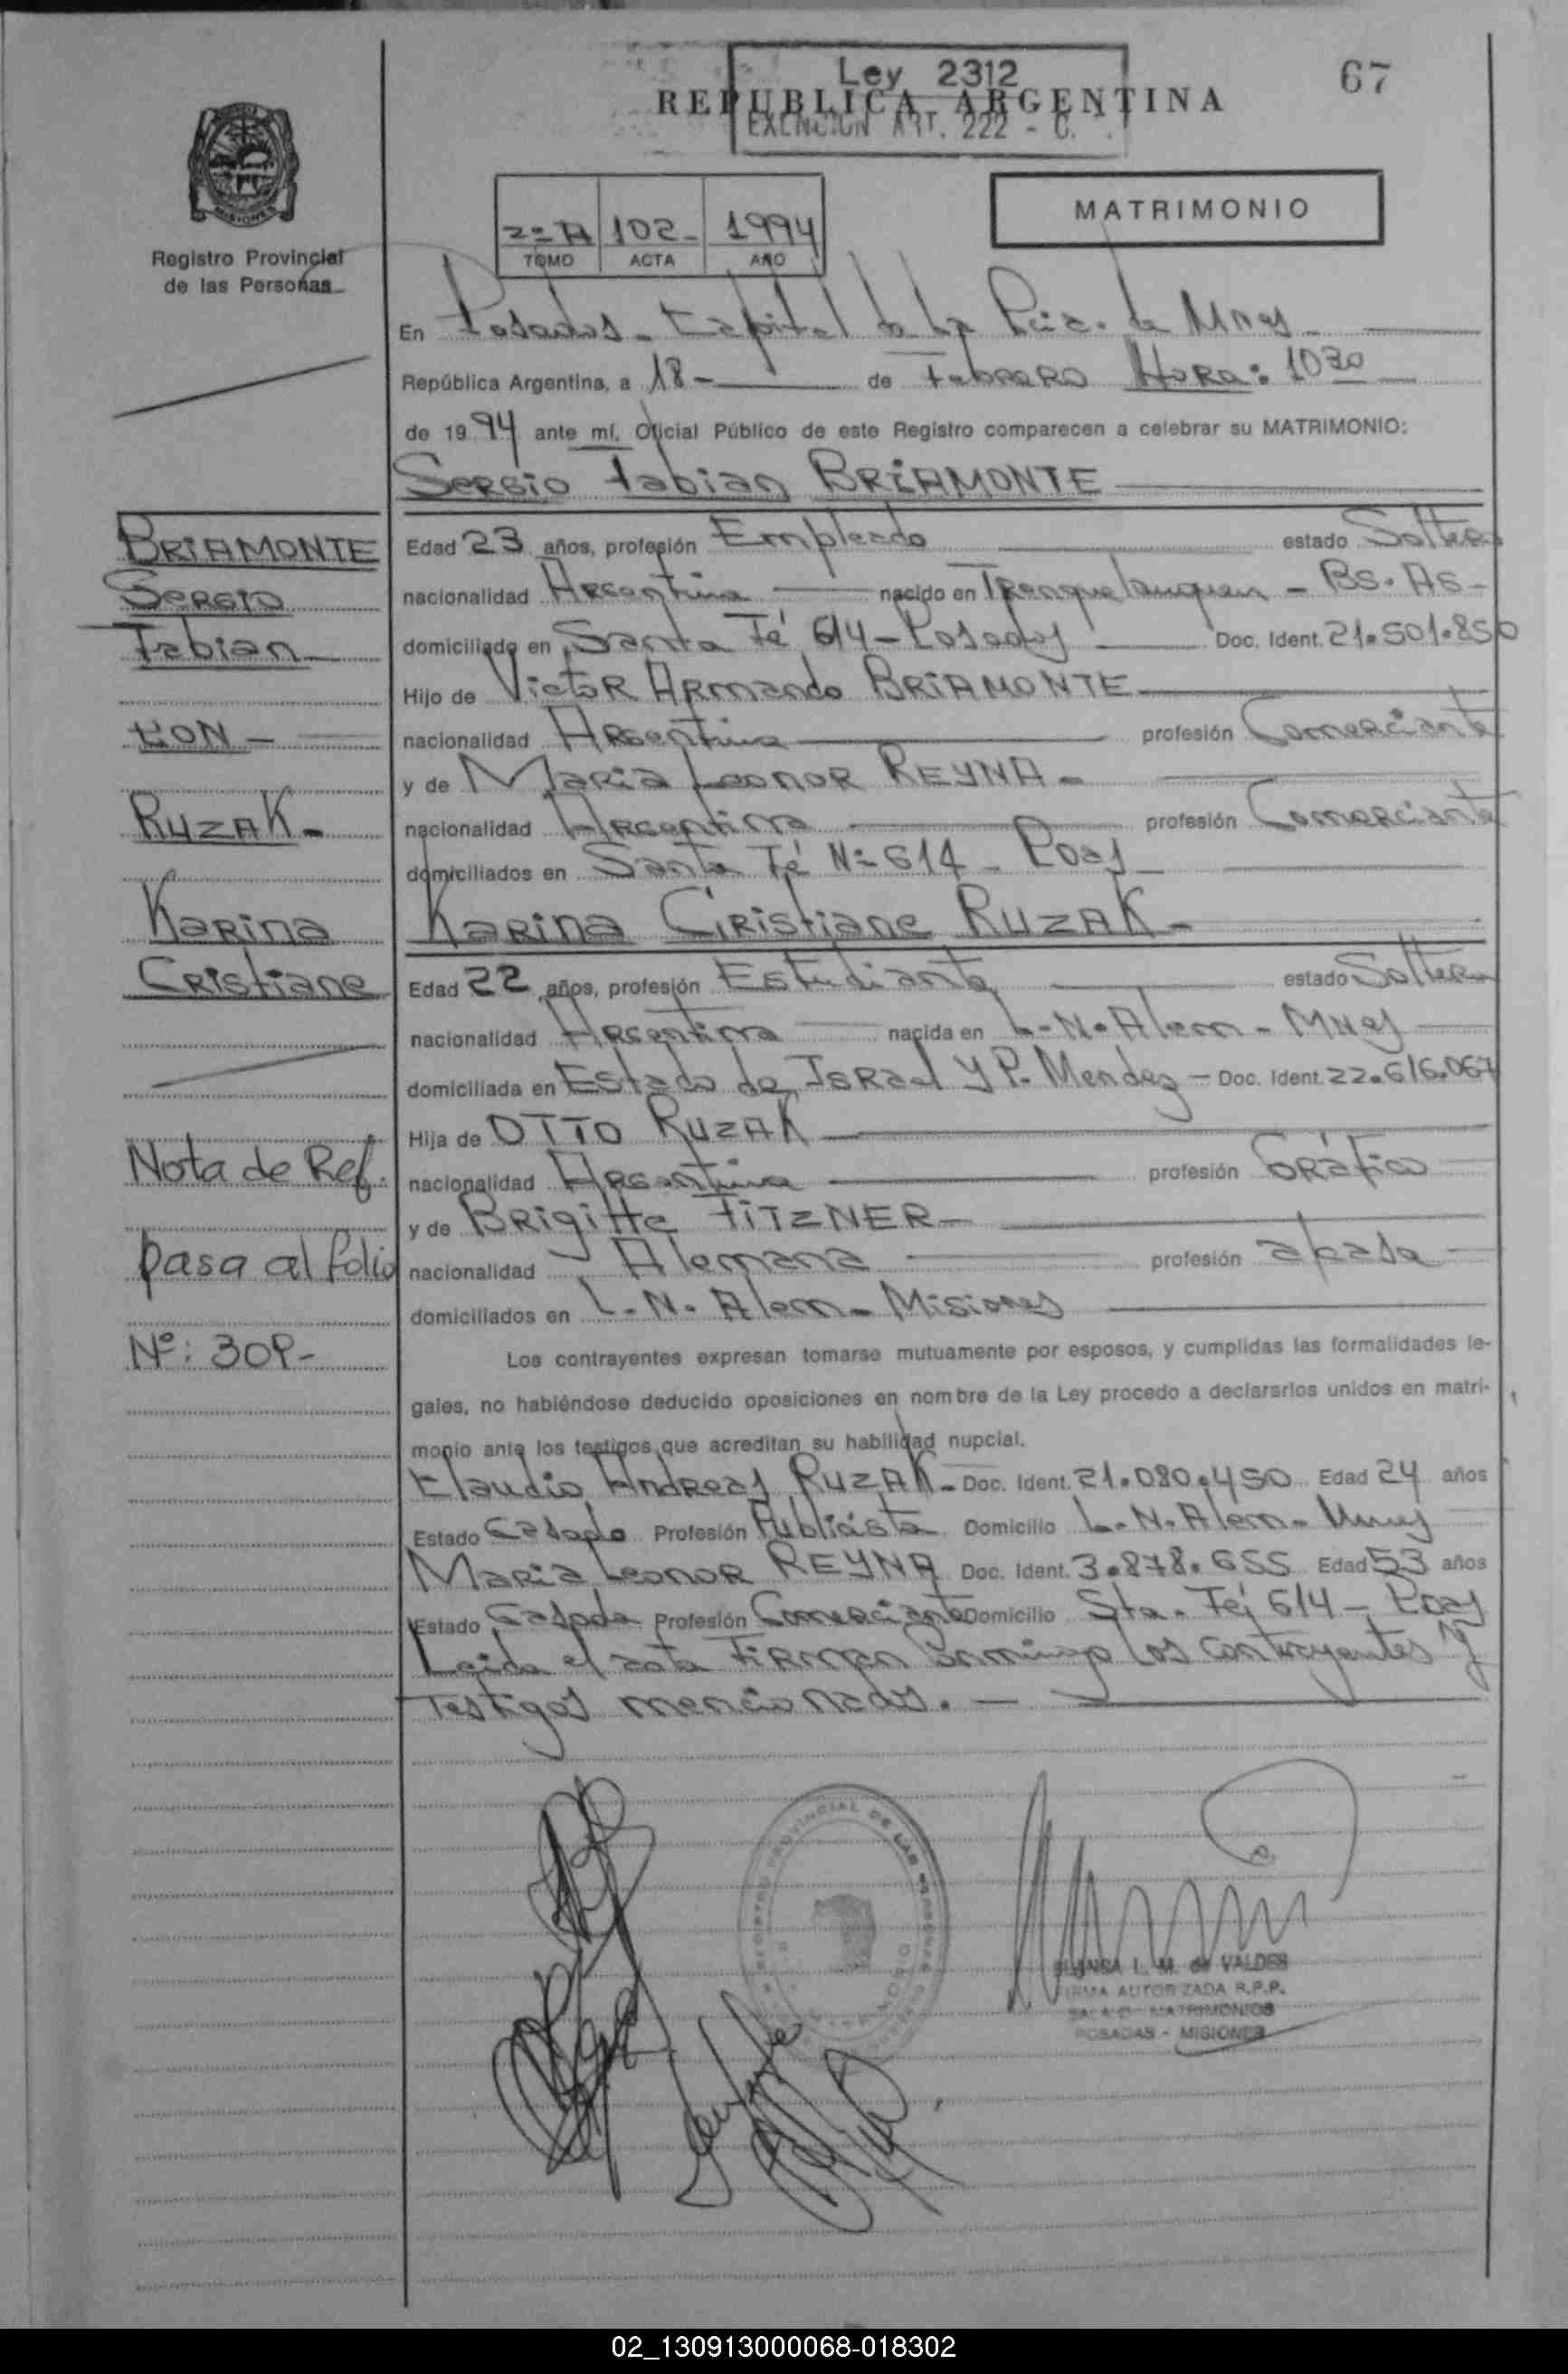 67
Ley 2312
REPUBLICA ARGENTINA
EXENCION ART. 222 - C.
MISIONES
Registro Provincial
de las Personas
2º A 102- 1994
TOMO ACTA AÑO
MATRIMONIO
En Posadas - Capital de la Pcia. de Mnes
República Argentina, a 18 - de Febrero Hora: 10 30
de 19 94 ante mí, Oficial Público de este Registro comparecen a celebrar su MATRIMONIO:
Sergio Fabian BRIAMONTE
BRIAMONTE
Sergio
Fabian
CON -
RUZAK -
Karina
Cristiane
Edad 23 años, profesión Empleado estado Soltero
nacionalidad Argentina nacido en Trenquelauquen - Bs. As -
domiciliado en Santa Fé 614 - Posadas Doc. Ident. 21.501.850
Hijo de Victor Armando BRIAMONTE
nacionalidad Argentina profesión Comerciante
y de Maria Leonor REYNA -
nacionalidad Argentina profesión Comerciante
domiciliados en Santa Fé Nº 614 - Pdas
Karina Cristiane RUZAK -
Edad 22 años, profesión Estudiante estado Soltera
nacionalidad Argentina nacida en L. N. Alem - Mnes
domiciliada en Estado de Israel y P. Mendez - Doc. Ident. 22.616.067
Hija de OTTO RUZAK
nacionalidad Argentina profesión Gráfico
y de Brigitte FITZNER -
nacionalidad Alemana profesión
domiciliados en L. N. Alem - Misiones
Nota de Ref.
pasa al folio
Nº: 309-
Los contrayentes expresan tomarse mutuamente por esposos, y cumplidas las formalidades le-
gales, no habiéndose deducido oposiciones en nombre de la Ley procedo a declararlos unidos en matri-
monio ante los testigos que acreditan su habilidad nupcial.
Claudio Andreas RUZAK - Doc. Ident. 21.080.450 Edad 24 años
Estado Casado Profesión Publicista Domicilio L. N. Alem - Mnes
Maria Leonor REYNA Doc. Ident. 3.878.655 Edad 53 años
Estado Casada Profesión Comerciante Domicilio Sta. Fé 614 - Pdas
Leida el acta firman conmigo los contrayentes y
testigos mencionados. -
REGISTRO PROVINCIAL DE LAS PERSONAS
BLANCA L. M. de VALDES
FIRMA AUTORIZADA R.P.P.
MATRIMONIOS
POSADAS - MISIONES
02_130913000068-018302